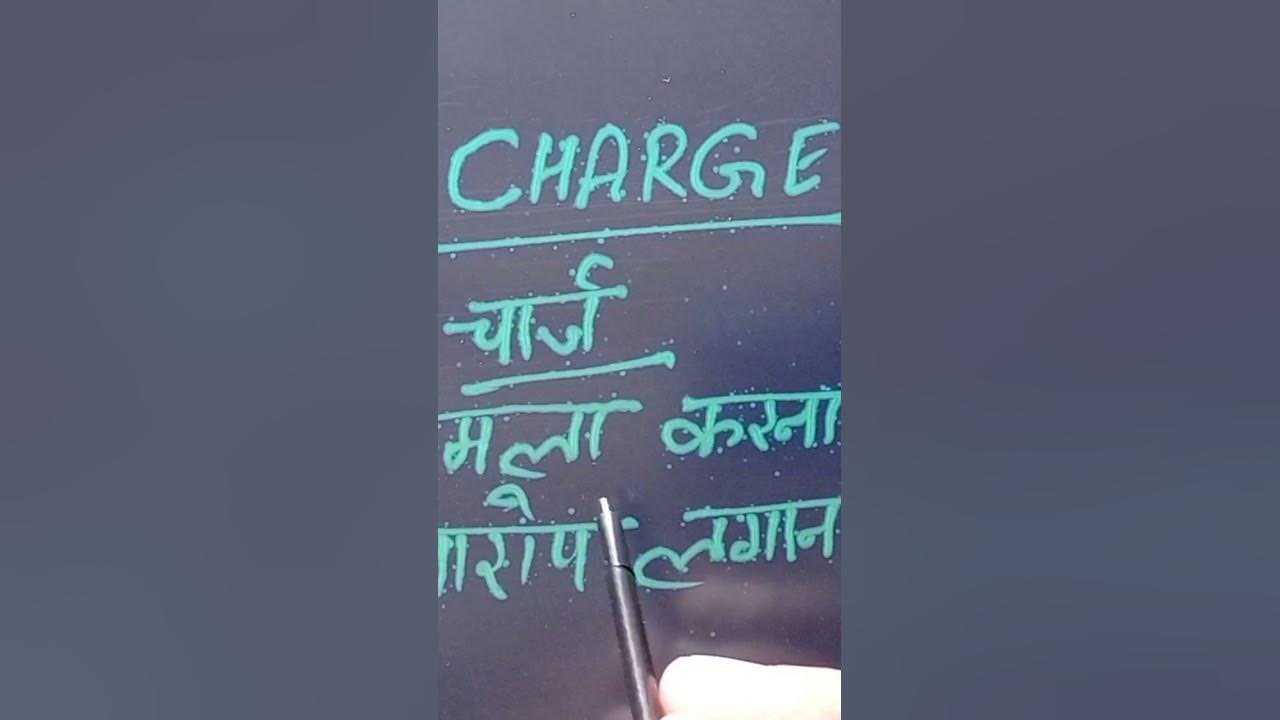 CHARGE
चार्ज
मला करना
ारोप लगान